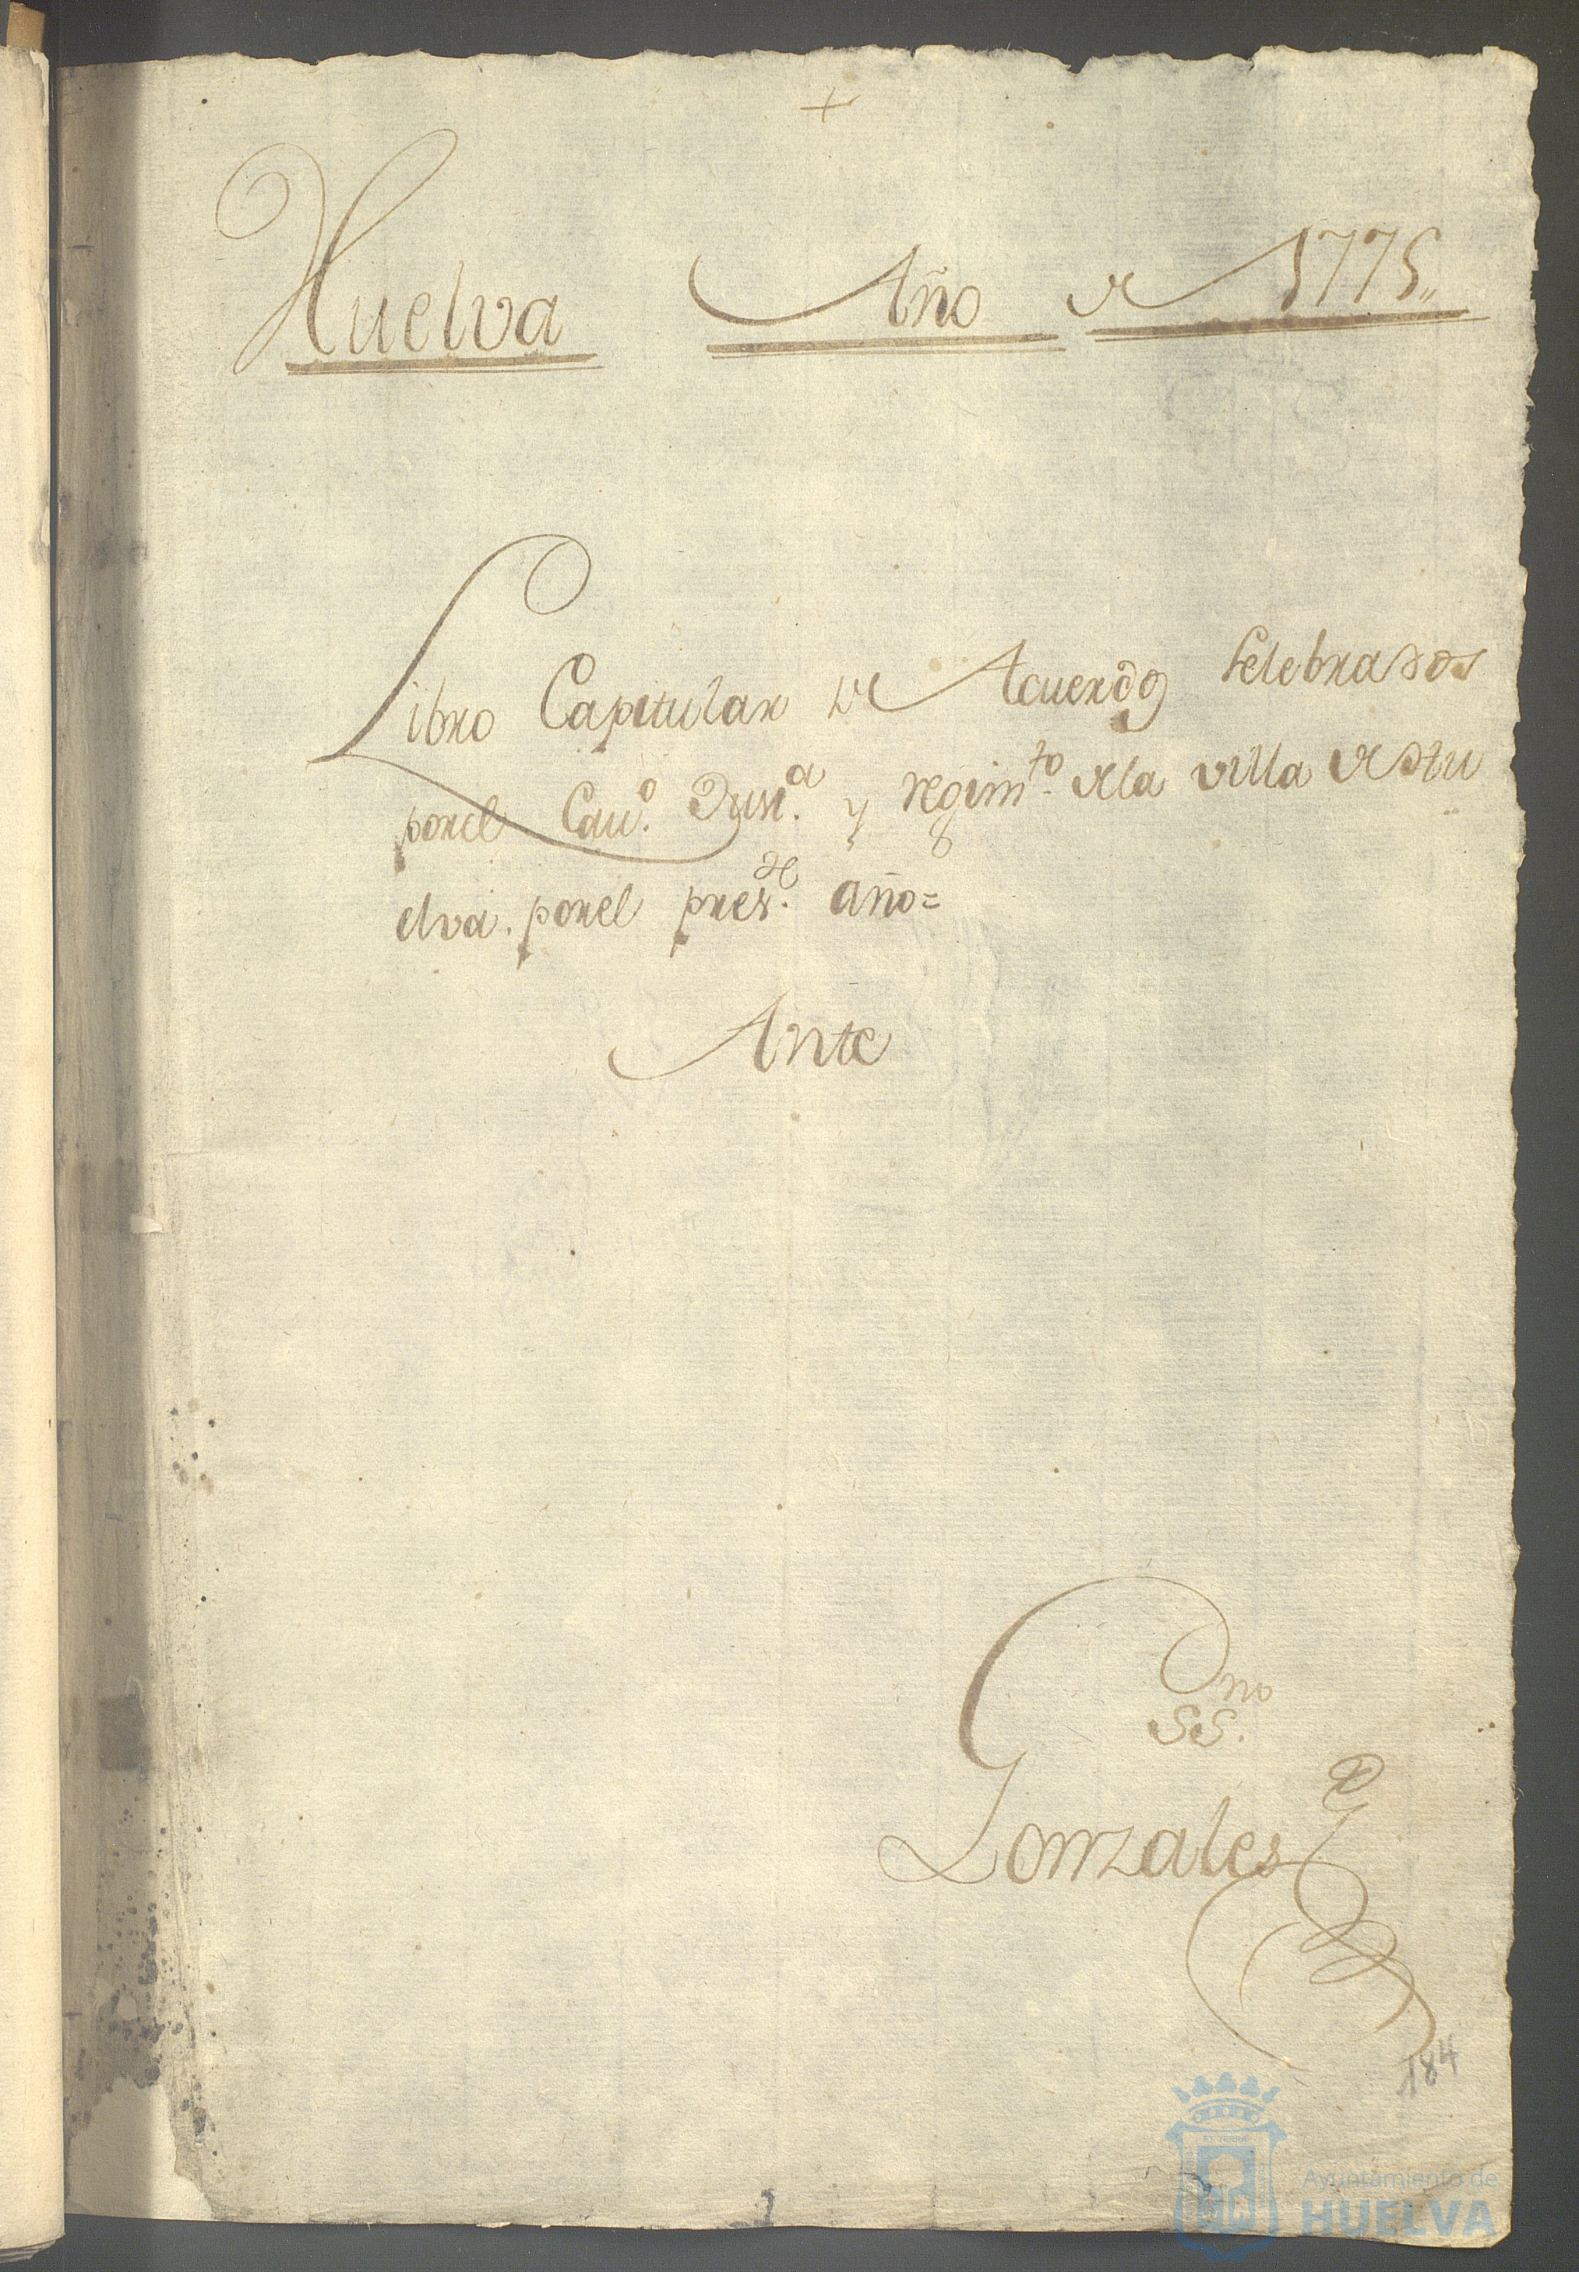 +
Huelva Año de 1775,,
Libro Capitular de Acuerdos Celebrados
porel Cau.º Jusi.ª y regim.to dela villa de Hu
elva. porel pres.te año=
Ante
SS.no
Gonzales
184
Ayuntamiento de
HUELVA